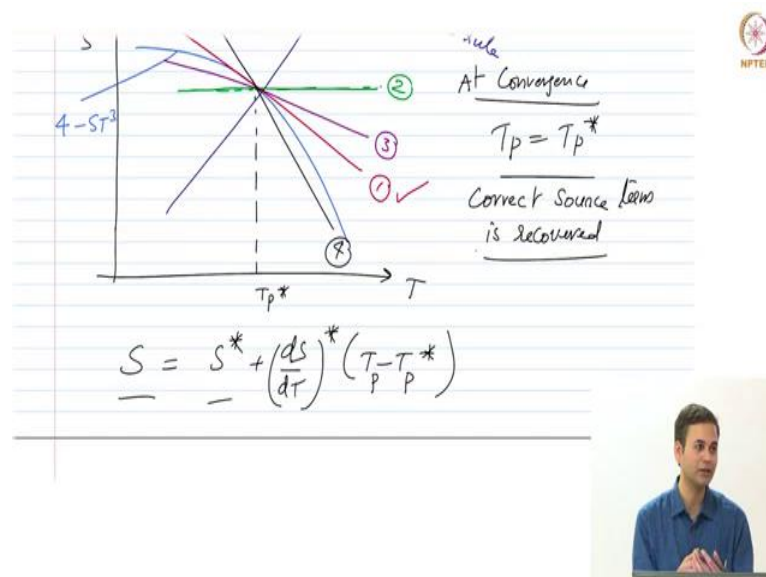 S
4-5T³
②
③
① ✓
④
Tp*
T
At Convergence
Tp = Tp*
Correct Source term
is recovered
S = S* + (dS/dT)* (Tp - Tp*)
NPTEL